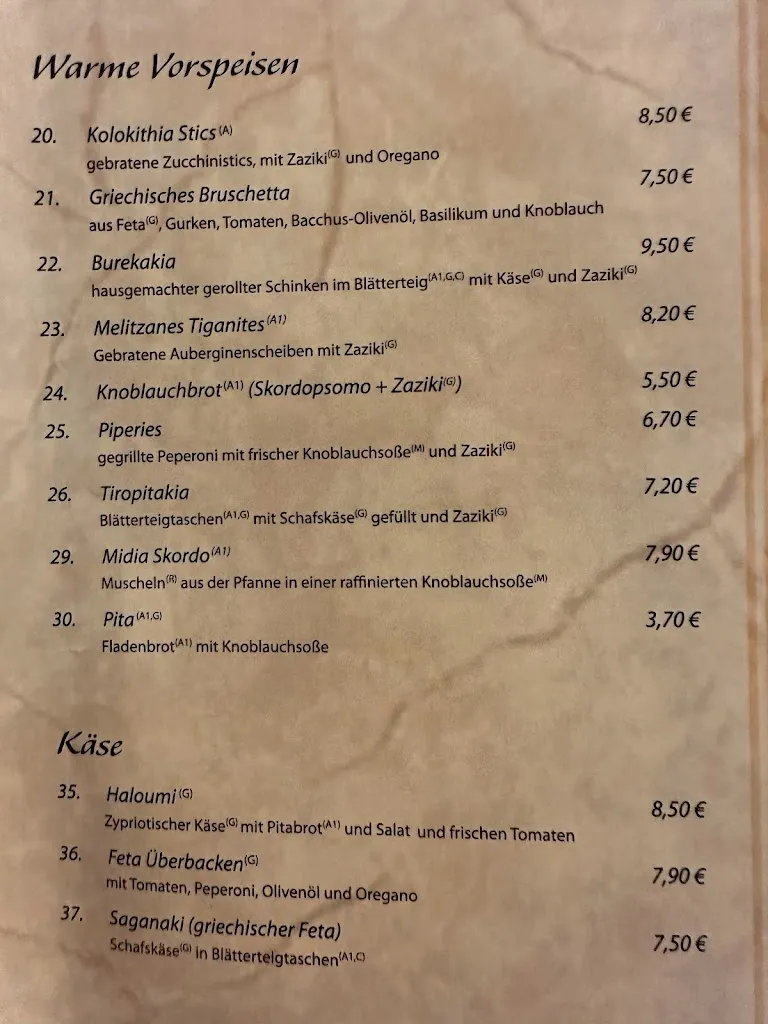 Warme Vorspeisen
20. Kolokithia Stics(A) 8,50 €
gebratene Zucchinistics, mit Zaziki(G) und Oregano
21. Griechisches Bruschetta 7,50 €
aus Feta(G), Gurken, Tomaten, Bacchus-Olivenöl, Basilikum und Knoblauch
22. Burekakia 9,50 €
hausgemachter gerollter Schinken im Blätterteig(A1,G,C) mit Käse(G) und Zaziki(G)
23. Melitzanes Tiganites(A1) 8,20 €
Gebratene Auberginenscheiben mit Zaziki(G)
24. Knoblauchbrot(A1) (Skordopsomo + Zaziki(G)) 5,50 €
25. Piperies 6,70 €
gegrillte Peperoni mit frischer Knoblauchsoße(M) und Zaziki(G)
26. Tiropitakia 7,20 €
Blätterteigtaschen(A1,G) mit Schafskäse(G) gefüllt und Zaziki(G)
29. Midia Skordo(A1) 7,90 €
Muscheln(R) aus der Pfanne in einer raffinierten Knoblauchsoße(M)
30. Pita(A1,G) 3,70 €
Fladenbrot(A1) mit Knoblauchsoße
Käse
35. Haloumi(G) 8,50 €
Zypriotischer Käse(G) mit Pitabrot(A1) und Salat und frischen Tomaten
36. Feta Überbacken(G) 7,90 €
mit Tomaten, Peperoni, Olivenöl und Oregano
37. Saganaki (griechischer Feta) 7,50 €
Schafskäse(G) in Blätterteigtaschen(A1,C)